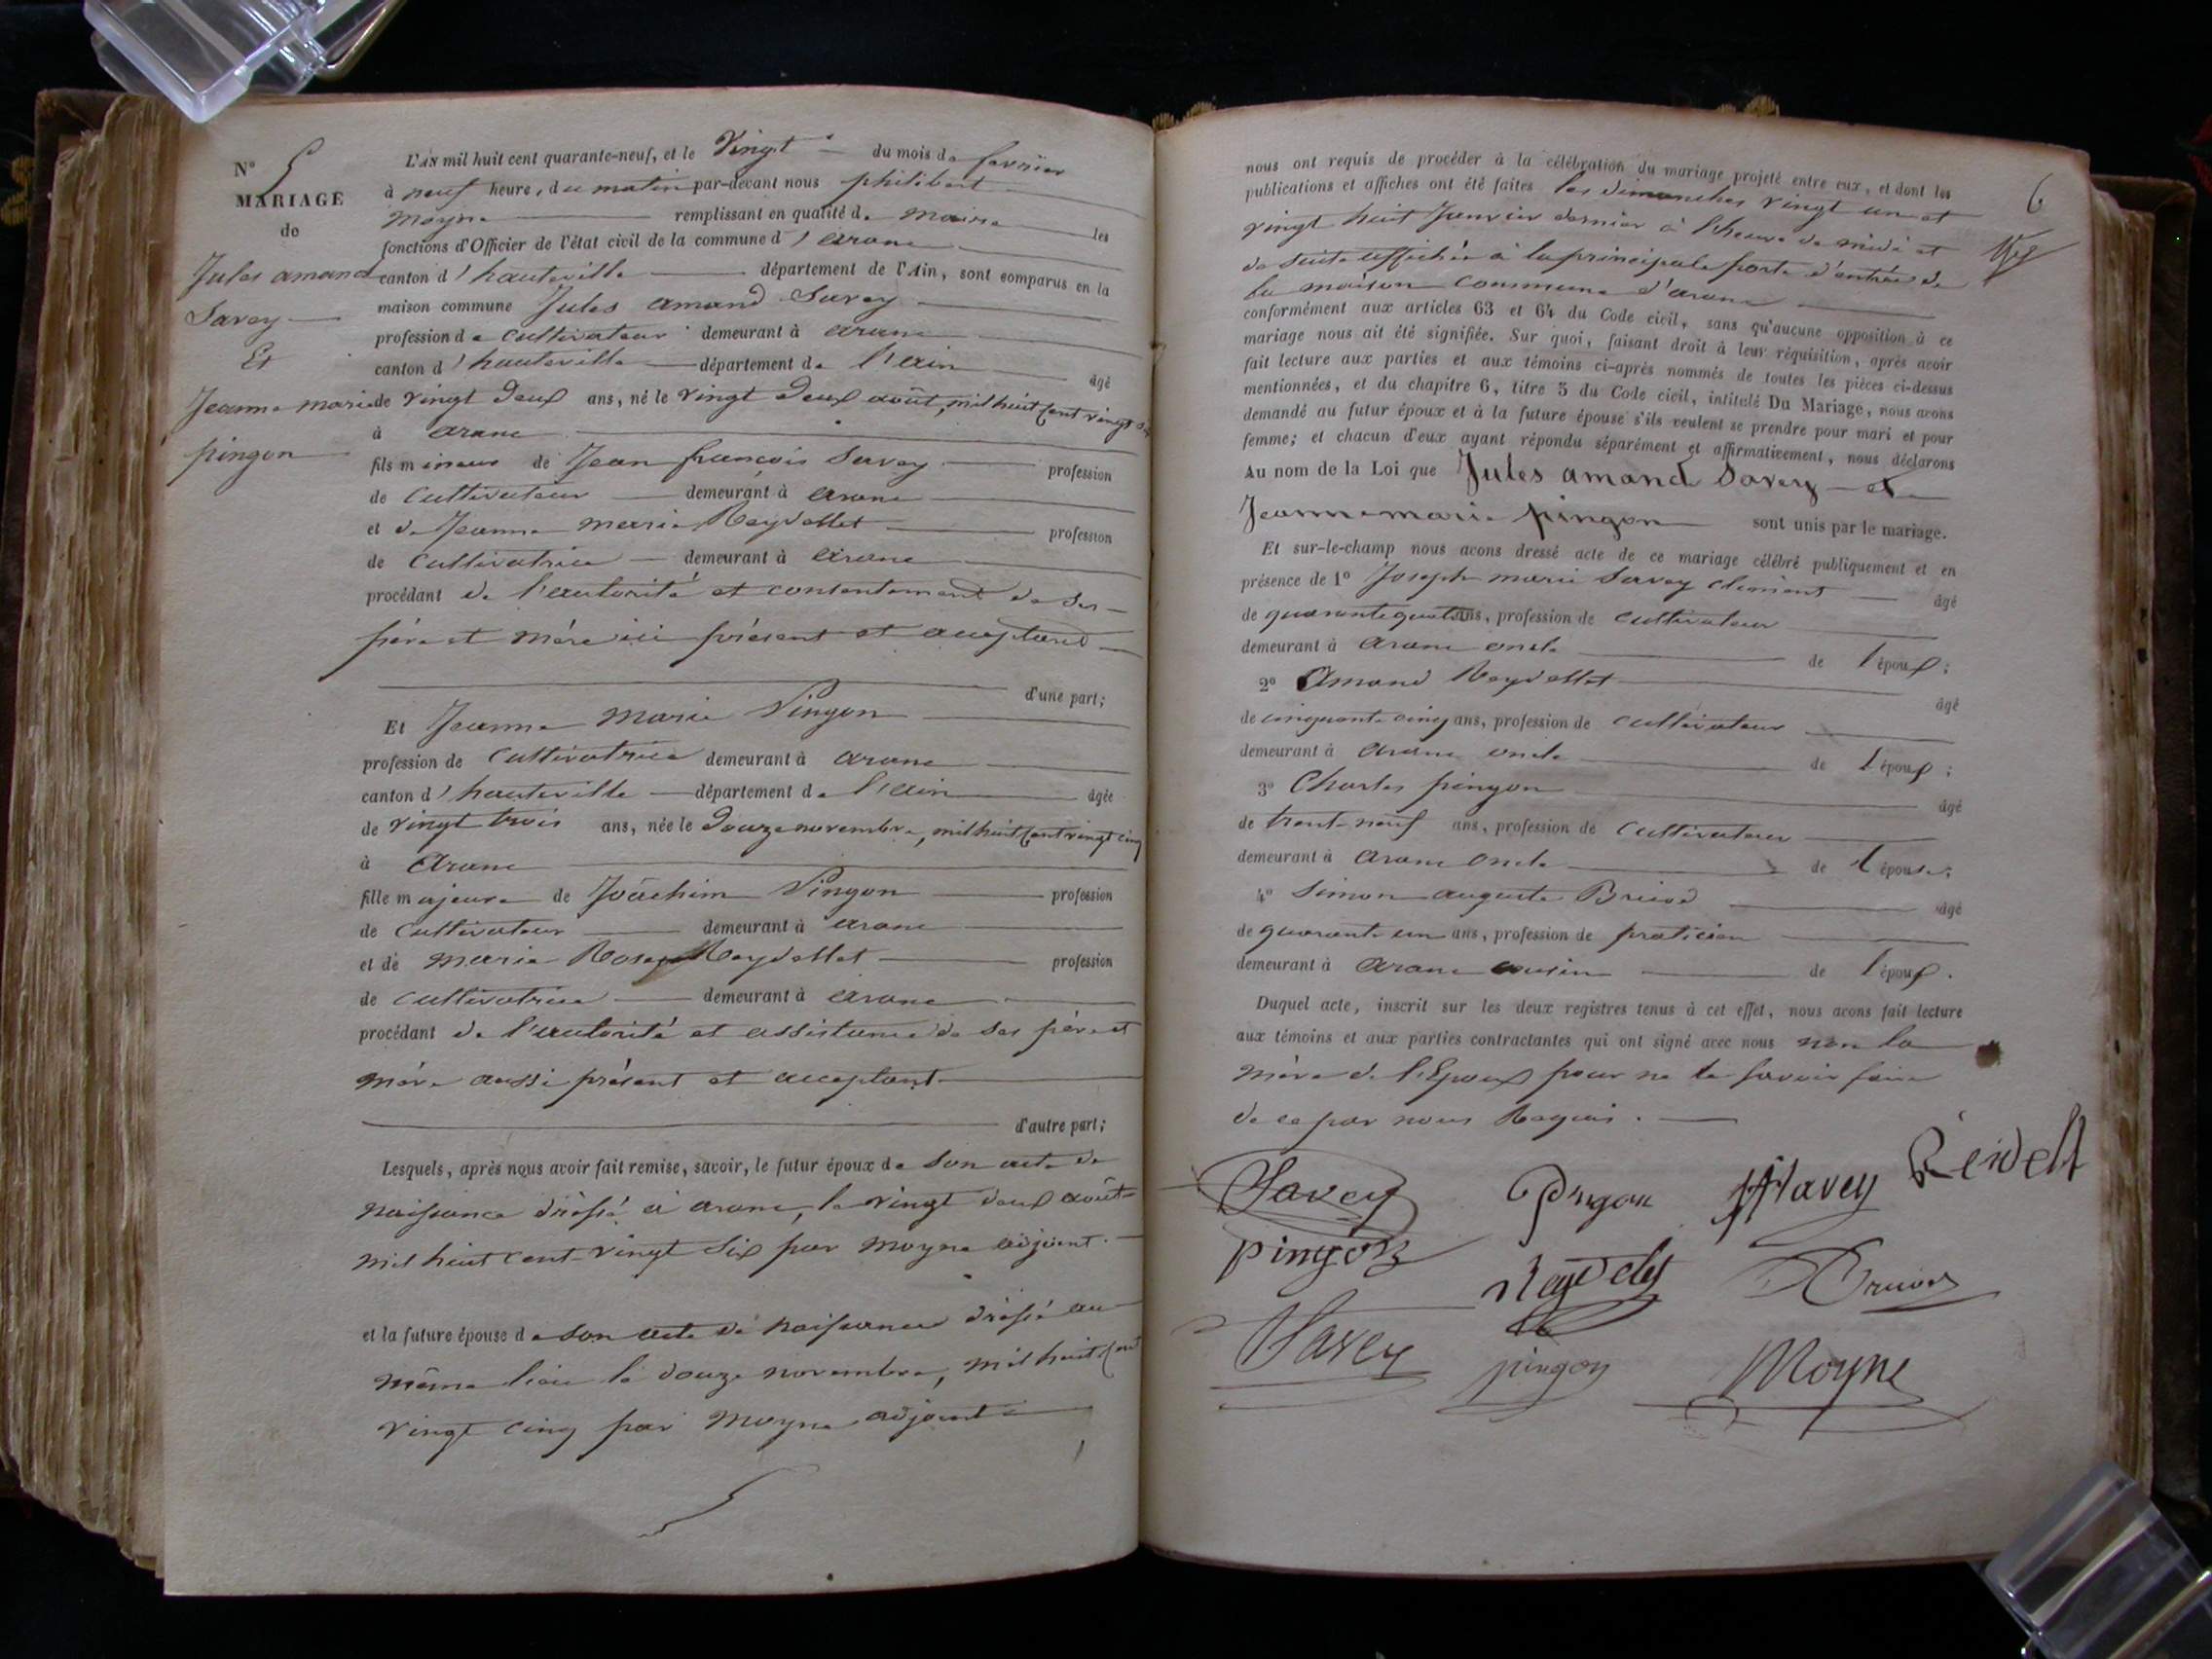 N° 5
MARIAGE
de
Jules amand
Savey
Et
Jeanne marie
pingon
L'AN mil huit cent quarante-neuf, et le Vingt du mois de fevrier
à neuf heure, du matin par-devant nous philibert
Moyne remplissant en qualité de maire les
fonctions d'Officier de l'état civil de la commune d'arane
canton d'hauteville département de l'Ain, sont comparus en la
maison commune Jules amand Savey
profession de cultivateur demeurant à arane
canton d'hauteville département de l'ain âgé
de vingt deux ans, né le vingt deux août, mil huit cent vingt six
à arane
fils mineur de Jean françois Savey profession
de cultivateur demeurant à arane
et de Jeanne marie Reydellet profession
de cultivatrice demeurant à arane
procédant de l'autorité et consentement de ses
père et mère ici présent et acceptant
d'une part;
Et Jeanne Marie Pingon
profession de cultivatrice demeurant à arane
canton d'hauteville département de l'ain âgée
de vingt trois ans, née le douze novembre, mil huit cent vingt cinq
à arane
fille majeure de Joachim Pingon profession
de cultivateur demeurant à arane
et de marie Rose Reydellet profession
de cultivatrice demeurant à arane
procédant de l'autorité et assistance de ses père et
mère aussi présent et acceptant
d'autre part;
Lesquels, après nous avoir fait remise, savoir, le futur époux de son acte de
naissance dréssé à arane, le vingt deux août
mil huit cent vingt six par moyne adjoint.
et la future épouse de son acte de naissance dréssé au
même lieu le douze novembre, mil huit cent
vingt cinq par moyne adjoint
6
nous ont requis de procéder à la célébration du mariage projeté entre eux, et dont les
publications et affiches ont été faites les dimanches vingt un et
vingt huit Janvier dernier à l'heure de midi et
de suite affichée à la principale porte d'entrée de
la maison commune d'arane
conformément aux articles 63 et 64 du Code civil, sans qu'aucune opposition à ce
mariage nous ait été signifiée. Sur quoi, faisant droit à leur réquisition, après avoir
fait lecture aux parties et aux témoins ci-après nommés de toutes les pièces ci-dessus
mentionnées, et du chapitre 6, titre 5 du Code civil, intitulé Du Mariage, nous avons
demandé au futur époux et à la future épouse s'ils veulent se prendre pour mari et pour
femme; et chacun d'eux ayant répondu séparément et affirmativement, nous déclarons
Au nom de la Loi que Jules amand Savey et
Jeanne marie pingon sont unis par le mariage.
Et sur-le-champ nous avons dressé acte de ce mariage célébré publiquement et en
présence de 1° Joseph marie Savey clément âgé
de quarante quatre ans, profession de cultivateur
demeurant à arane oncle de l'époux;
2° Amand Reydellet âgé
de cinquante cinq ans, profession de cultivateur
demeurant à arane oncle de l'époux;
3° Charles pingon âgé
de trente neuf ans, profession de cultivateur
demeurant à arane oncle de l'épouse;
4° Simon auguste Bruiod âgé
de quarante un ans, profession de praticien
demeurant à arane cousin de l'époux.
Duquel acte, inscrit sur les deux registres tenus à cet effet, nous avons fait lecture
aux témoins et aux parties contractantes qui ont signé avec nous non la
mère de l'Epoux pour ne le savoir faire
de ce par nous Requis.
Savey Pingon Savey Reidelt
pingon Reydelet
Savey pingon Moyne